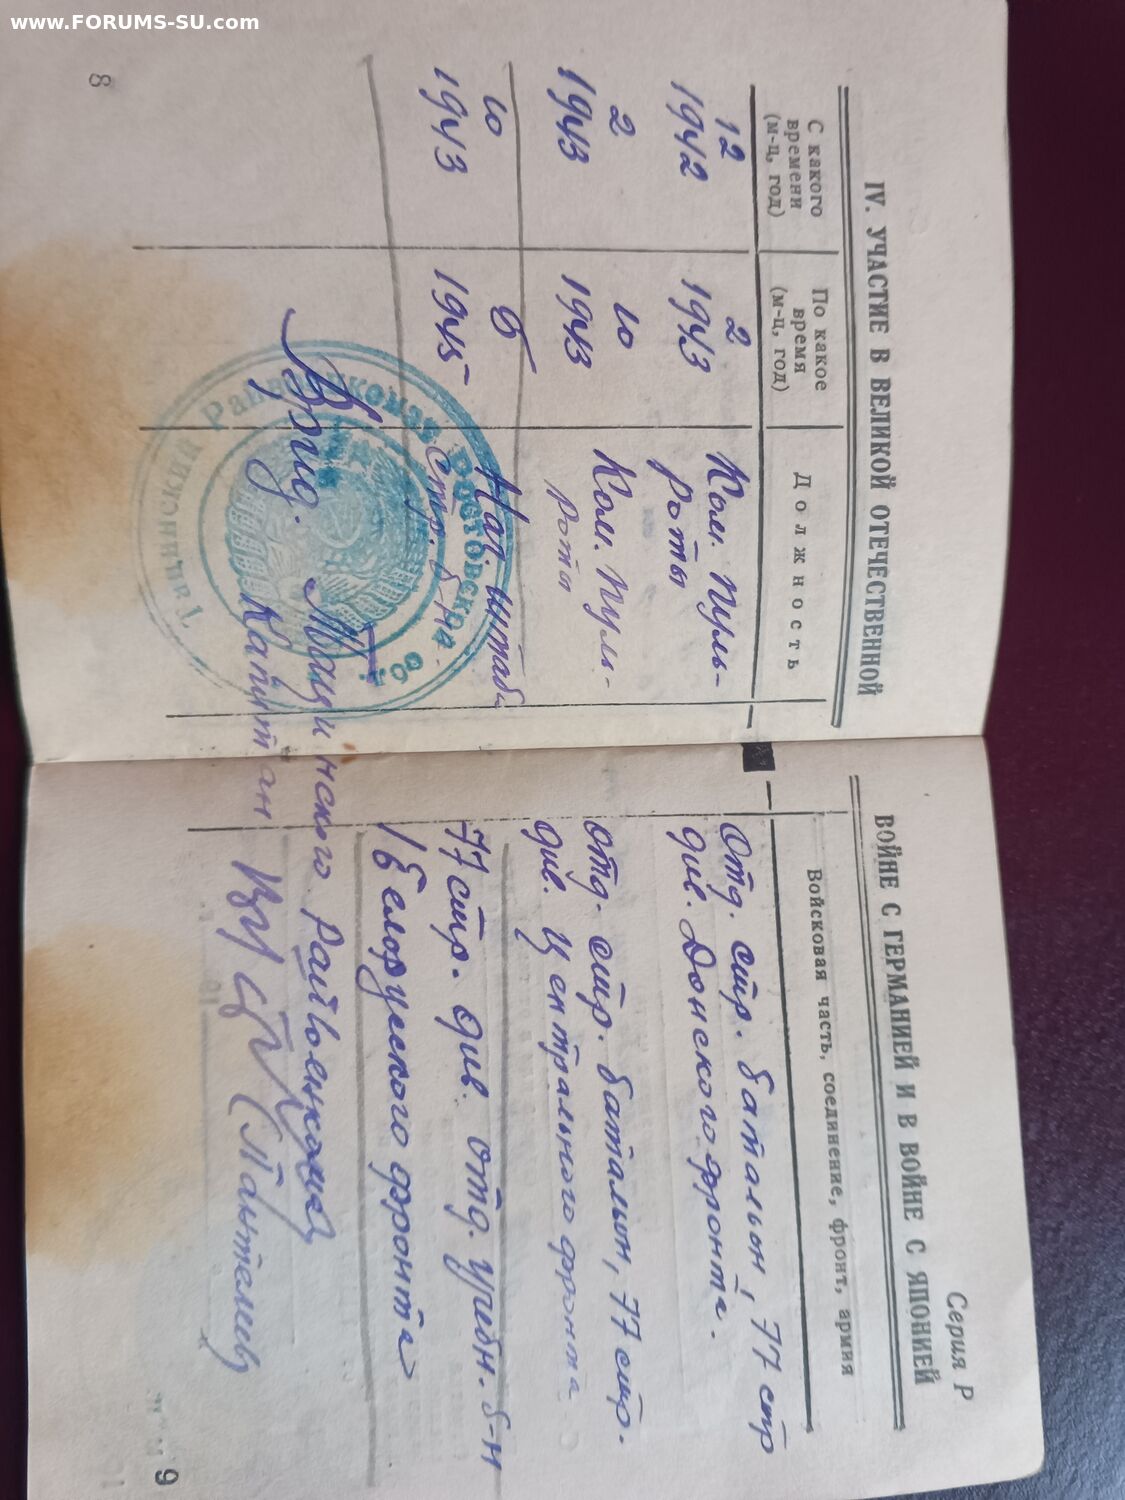 www.FORUMS-SU.com
IV. УЧАСТИЕ В ВЕЛИКОЙ ОТЕЧЕСТВЕННОЙ
С какого
времени
(м-ц, год)
По какое
время
(м-ц, год)
Должность
12
1942
2
1943
Ком. пуль-
роты
2
1943
10
1943
Ком. пуль-
роты
10
1943
1945
Нач. штаба
стр. б-на
М.П.
Ростовская об
Тацинский Райвоенкомат
8
Серия Р
ВОЙНЕ С ГЕРМАНИЕЙ И В ВОЙНЕ С ЯПОНИЕЙ
Войсковая часть, соединение, фронт, армия
Отд. стр. батальон, 77 стр
див. Донского фронта.
Отд. стр. батальон, 77 стр.
див. Центрального фронта
77 стр. див. отд. учебн. б-н
1 Белорусского фронта
Врид. Тацинского Райвоенкома
Капитан (Пантелеев)
9